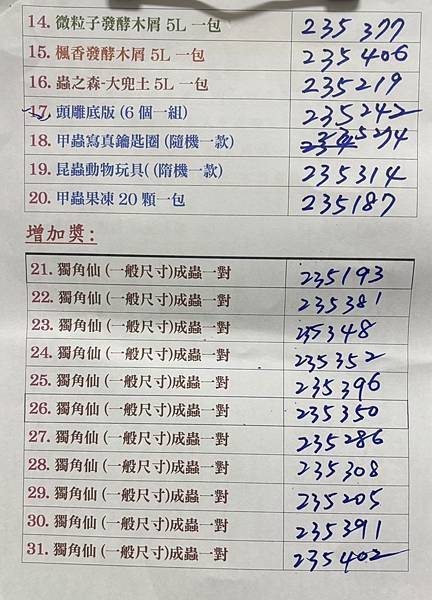 14. 微粒子發酵木屑 5L 一包 235377
15. 楓香發酵木屑 5L 一包 235406
16. 蟲之森-大兜土 5L 一包 235219
17. 頭雕底版 (6 個一組) 235242
18. 甲蟲寫真鑰匙圈 (隨機一款) 235274
19. 昆蟲動物玩具( (隋機一款) 235314
20. 甲蟲果凍 20 顆一包 235187
增加獎:
21. 獨角仙 (一般尺寸)成蟲一對 235193
22. 獨角仙 (一般尺寸)成蟲一對 235381
23. 獨角仙 (一般尺寸)成蟲一對 235348
24. 獨角仙 (一般尺寸)成蟲一對 235352
25. 獨角仙 (一般尺寸)成蟲一對 235396
26. 獨角仙 (一般尺寸)成蟲一對 235350
27. 獨角仙 (一般尺寸)成蟲一對 235286
28. 獨角仙 (一般尺寸)成蟲一對 235308
29. 獨角仙 (一般尺寸)成蟲一對 235205
30. 獨角仙 (一般尺寸)成蟲一對 235391
31. 獨角仙 (一般尺寸)成蟲一對 235402